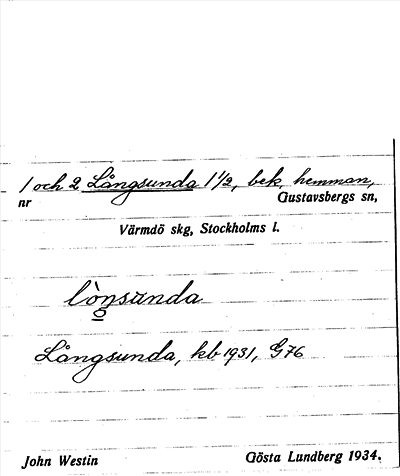 1 och 2 Långsunda 1 1/2, bek. hemman,
nr Gustavsbergs sn,
Värmdö skg, Stockholms l.
Långsunda, kb 1931, G 76
John Westin Gösta Lundberg 1934.